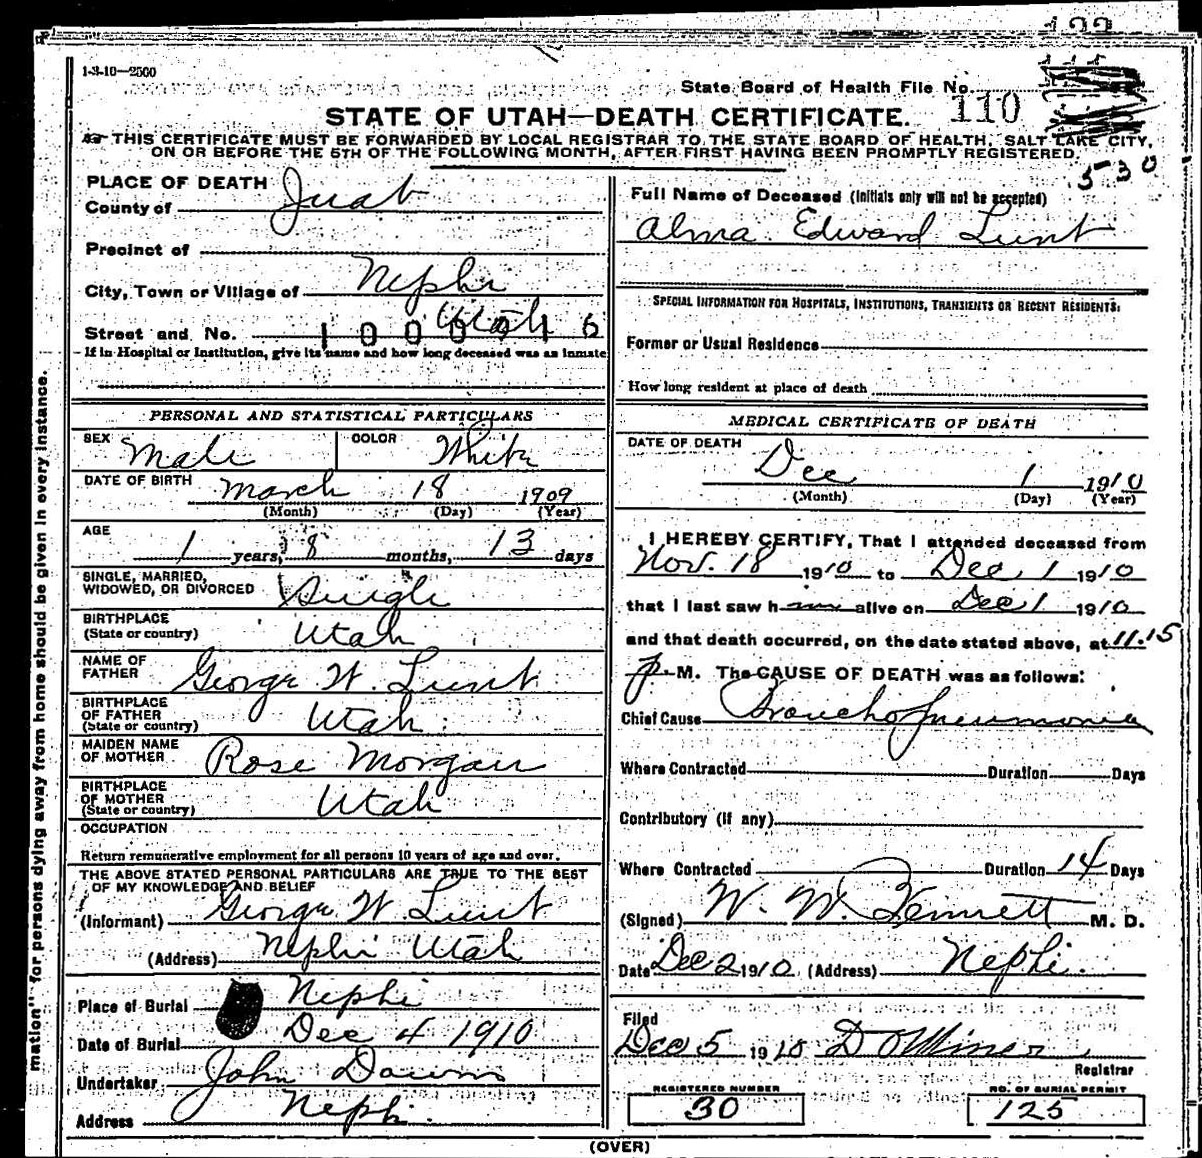 1-3-10—2500
State Board of Health File No.
110
STATE OF UTAH—DEATH CERTIFICATE.
THIS CERTIFICATE MUST BE FORWARDED BY LOCAL REGISTRAR TO THE STATE BOARD OF HEALTH, SALT LAKE CITY,
ON OR BEFORE THE 5TH OF THE FOLLOWING MONTH, AFTER FIRST HAVING BEEN PROMPTLY REGISTERED.
530
PLACE OF DEATH
County of Juab
Precinct of
City, Town or Village of Nephi
Utah
Street and No.
If in Hospital or Institution, give its name and how long deceased was an inmate
PERSONAL AND STATISTICAL PARTICULARS
SEX Male COLOR White
DATE OF BIRTH March 18 1909
(Month) (Day) (Year)
AGE 1 years, 8 months, 13 days
SINGLE, MARRIED,
WIDOWED, OR DIVORCED Single
BIRTHPLACE
(State or country) Utah
NAME OF
FATHER George W. Lunt
BIRTHPLACE
OF FATHER
(State or country) Utah
MAIDEN NAME
OF MOTHER Rose Morgan
BIRTHPLACE
OF MOTHER
(State or country) Utah
OCCUPATION
Return remunerative employment for all persons 10 years of age and over.
THE ABOVE STATED PERSONAL PARTICULARS ARE TRUE TO THE BEST
OF MY KNOWLEDGE AND BELIEF
(Informant) George W Lunt
(Address) Nephi Utah
Place of Burial Nephi
Date of Burial Dec 4 1910
Undertaker John Dawns
Address Nephi.
Full Name of Deceased (Initials only will not be accepted)
Alma Edward Lunt
SPECIAL INFORMATION FOR HOSPITALS, INSTITUTIONS, TRANSIENTS OR RECENT RESIDENTS:
Former or Usual Residence
How long resident at place of death
MEDICAL CERTIFICATE OF DEATH
DATE OF DEATH
Dec 1 1910
(Month) (Day) (Year)
I HEREBY CERTIFY, That I attended deceased from
Nov. 18 1910 to Dec 1 1910
that I last saw him alive on Dec 1 1910
and that death occurred, on the date stated above, at 11.15
P. M. The CAUSE OF DEATH was as follows:
Chief Cause Broncho pneumonia
Where Contracted Duration Days
Contributory (if any)
Where Contracted Duration 14 Days
(Signed) W. W. Bennett M. D.
Date Dec 2 1910 (Address) Nephi.
Filed
Dec 5 1910 D O Miner
Registrar
REGISTERED NUMBER
30
NO. OF BURIAL PERMIT
125
(OVER)
mation" for persons dying away from home should be given in every instance.